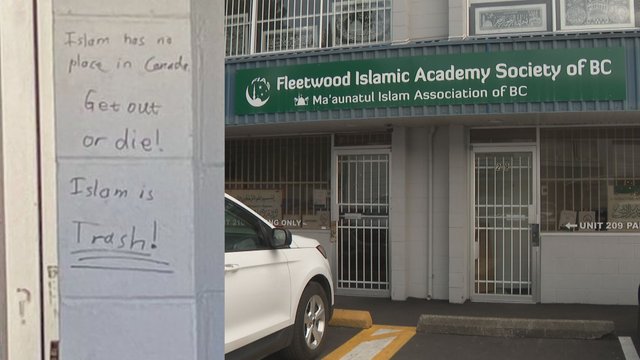 Islam has no
place in Canada
Get out
or die!
Islam is
Trash!
Fleetwood Islamic Academy Society of BC
Ma'aunatul Islam Association of BC
NG ONLY
← UNIT 209 PA